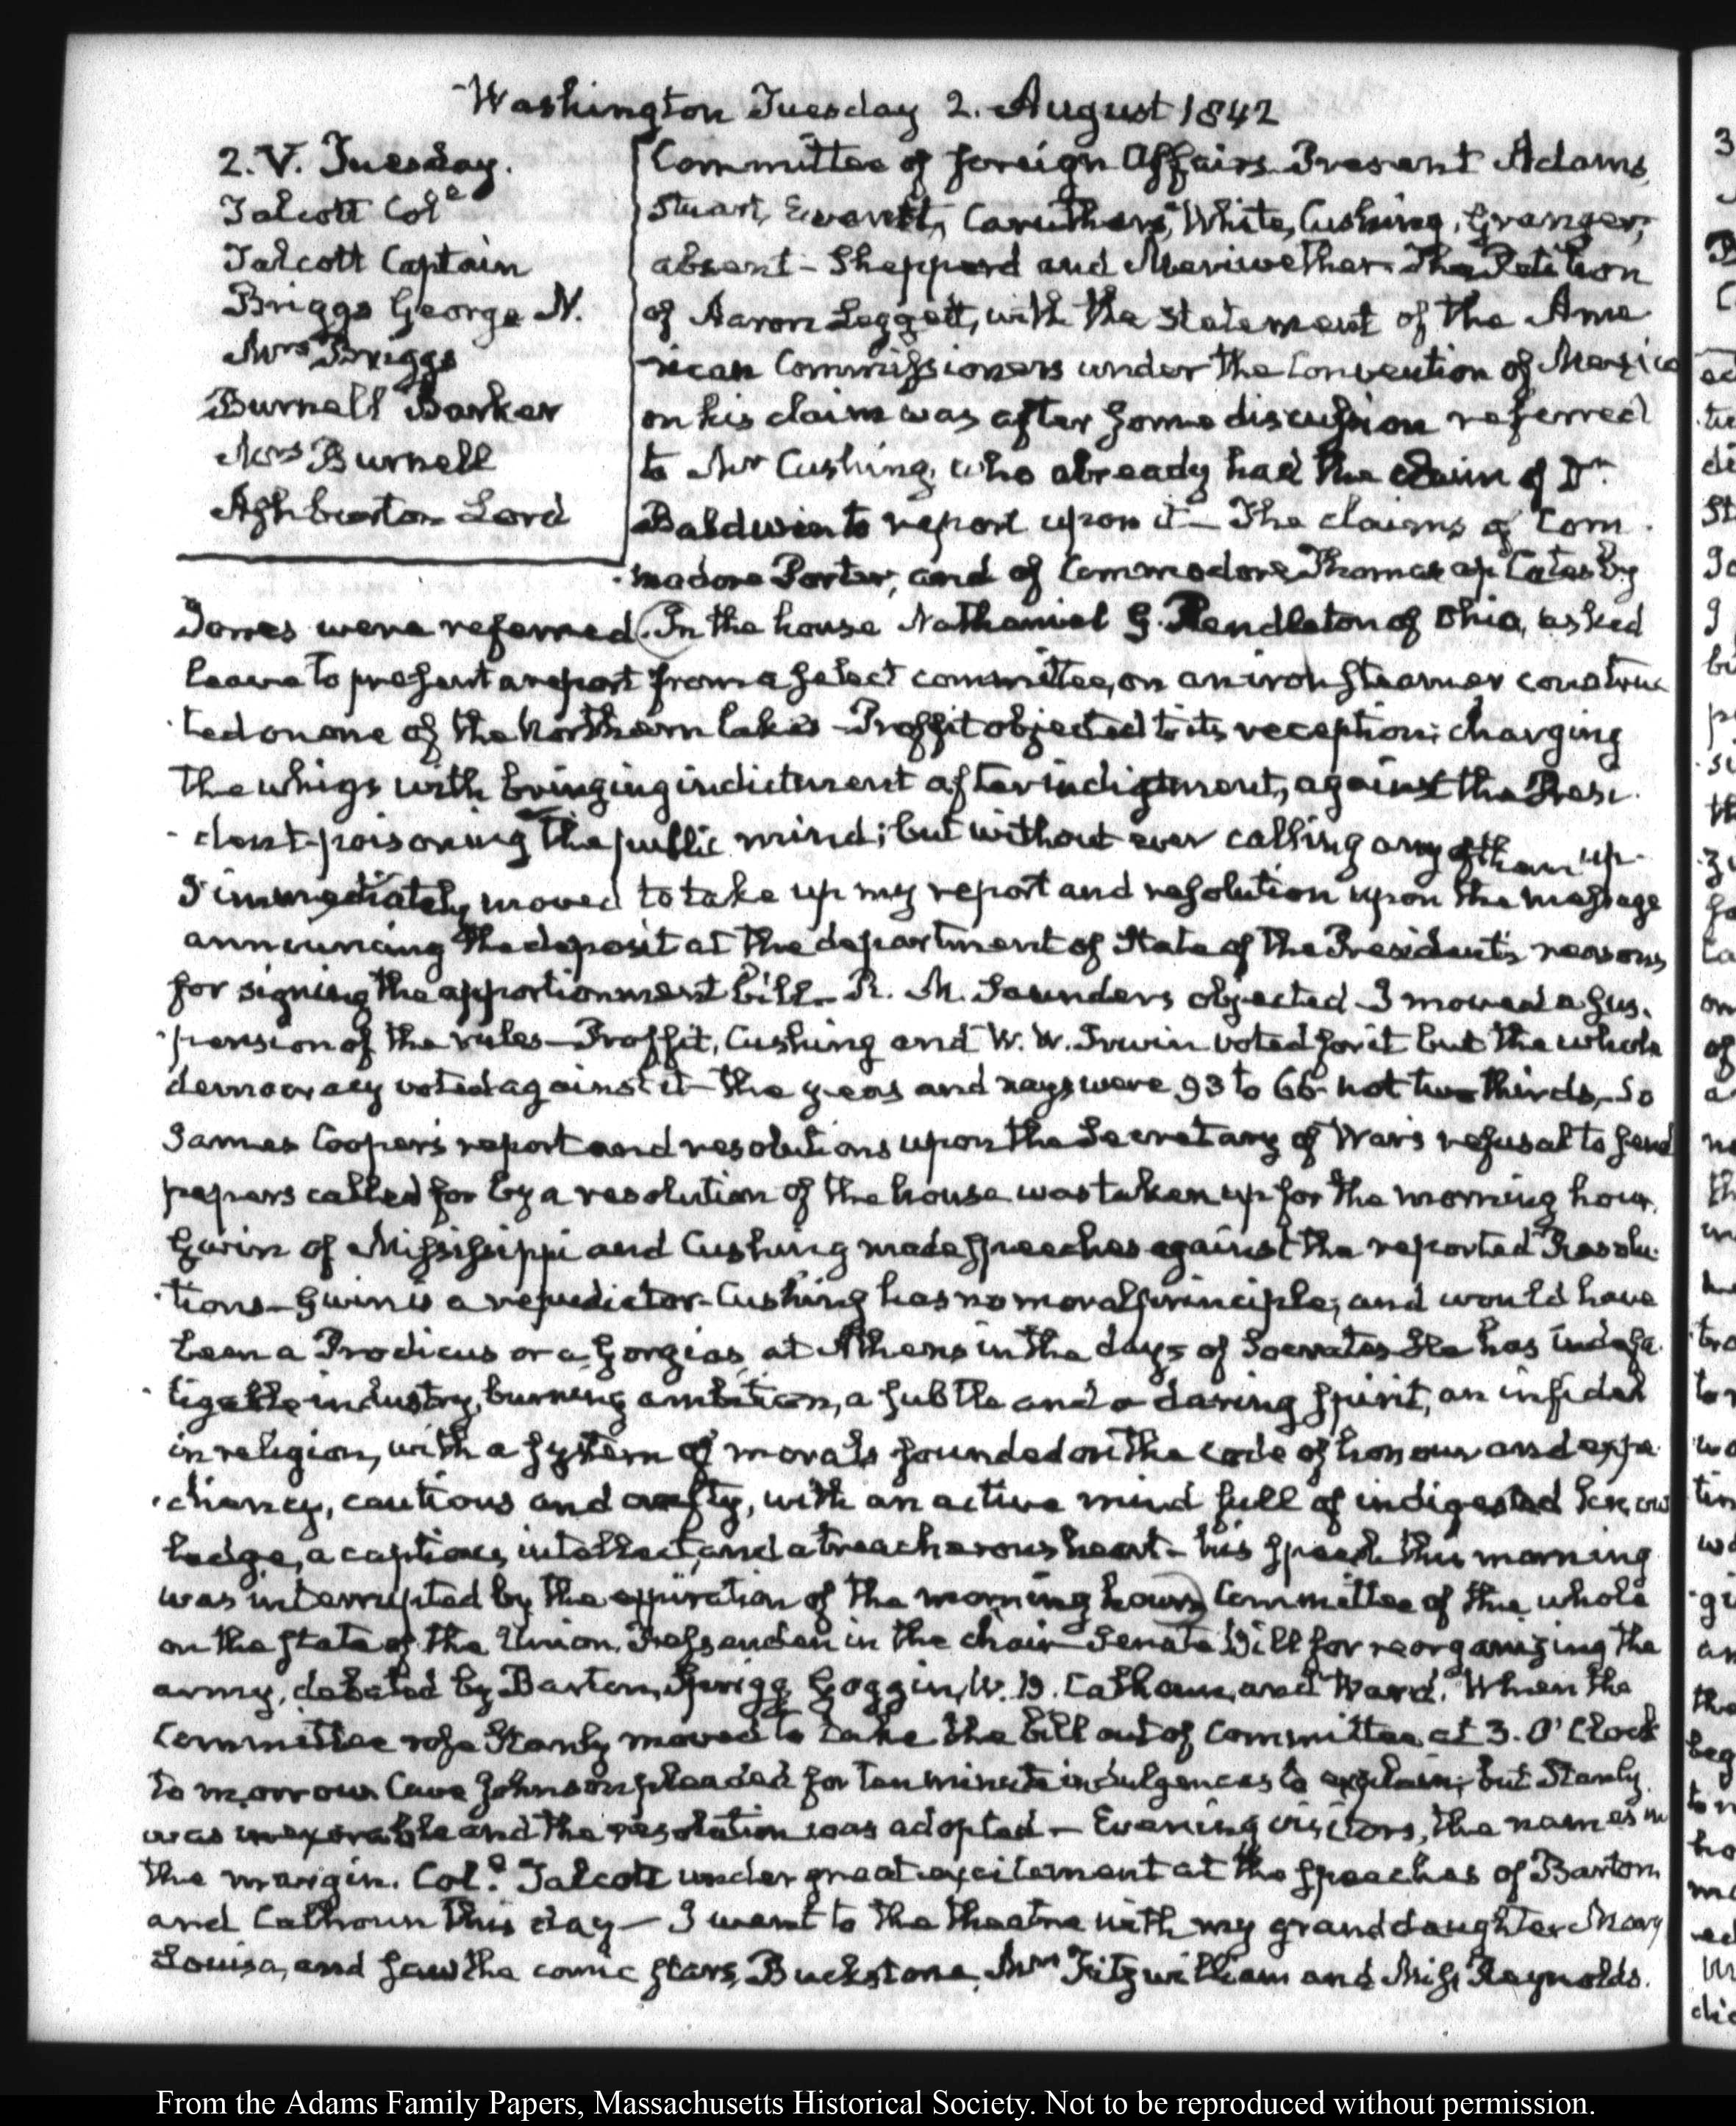 Washington Tuesday 2. August 1842
2. V. Tuesday.
Talcott Colᵉ
Talcott Captain
Briggs George N.
Mrs Briggs
Burnell Barker
Mrs Burnell
Ashburton Lord
Committee of foreign Affairs. Present Adams,
Stuart, Everett, Caruthers, White, Cushing, Granger,
absent - Shepperd and Meriwether. The Petition
of Aaron Leggett, with the statement of the Ame
rican Commissioners under the Convention of Mexico
on his claim was after some discussion referred
to Mr Cushing, who already had the claim of Dr.
Baldwin to report upon it - The claims of Com
modore Porter, and of Commodore Thomas ap Catesby
Jones were referred. In the house Nathaniel G. Pendleton of Ohio, asked
leave to present a report from a select committee, on an iron steamer construc
ted on one of the Northern lakes - Proffit objected to its reception; charging
the whigs with bringing indictment after indictment, against the Presi
dent poisoning the public mind; but without ever calling any of them up.
I immediately moved to take up my report and resolution upon the message
announcing the deposit at the department of State of the President's reasons
for signing the apportionment bill - R. M. Saunders objected - I moved a sus
pension of the rules - Proffit, Cushing and W. W. Irwin voted for it but the whole
democracy voted against it - the yeas and nays were 93 to 66 not two thirds, So
James Cooper's report and resolutions upon the Secretary of War's refusal to send
papers called for by a resolution of the house was taken up for the morning hour.
Gwin of Mississippi and Cushing made speeches against the reported Resolu
tions - Gwin is a repudiator - Cushing has no moral principle; and would have
been a Prodicus or a Gorgias, at Athens in the days of Socrates. He has indefa
tigable industry, burning ambition, a subtle and a daring spirit, an infidel
in religion, with a system of morals founded on the code of honour and expe
diency, cautious and crafty, with an active mind full of indigested know
ledge, a captious intellect, and a treacherous heart - his speech this morning
was interrupted by the expiration of the morning hour. Committee of the whole
on the state of the Union, Fessenden in the chair - Senate Bill for reorganizing the
army, debated by Barton, Sprigg, Goggin, W. B. Calhoun, and Ward. When the
Committee rose Stanly moved to take the bill out of Committee at 3. O'Clock
to morrow. Cave Johnson pleaded for ten minute indulgences to explain; but Stanly
was inexorable and the resolution was adopted - Evening visitors, the names in
the margin. Colᵉ Talcott under great excitement at the speeches of Barton
and Calhoun this day - I went to the theatre with my granddaughter Mary
Louisa, and saw the comic stars, Buckstone, Mrs Fitzwilliam and Miss Reynolds.
From the Adams Family Papers, Massachusetts Historical Society. Not to be reproduced without permission.